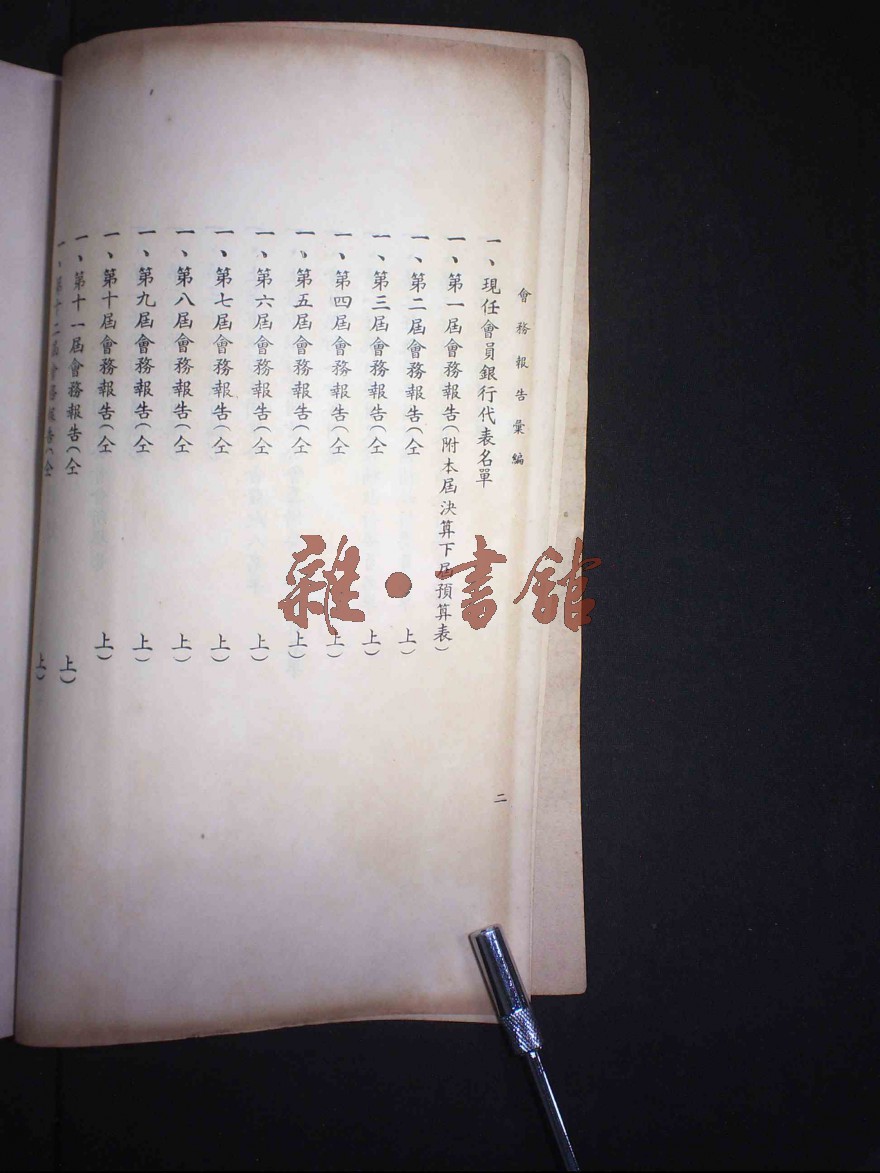 會務報告彙編
一、現任會員銀行代表名單
一、第一屆會務報告（附本屆決算下屆預算表）
一、第二屆會務報告（仝上）
一、第三屆會務報告（仝上）
一、第四屆會務報告（仝上）
一、第五屆會務報告（仝上）
一、第六屆會務報告（仝上）
一、第七屆會務報告（仝上）
一、第八屆會務報告（仝上）
一、第九屆會務報告（仝上）
一、第十屆會務報告（仝上）
一、第十一屆會務報告（仝上）
一、第十二屆會務報告（仝上）
二
雜·書館